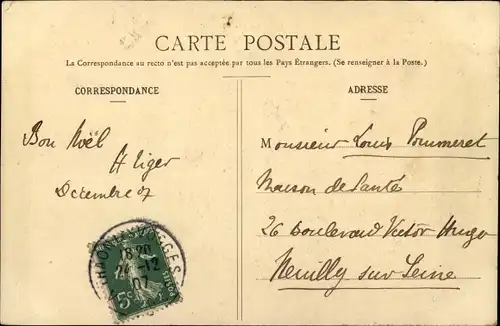 CARTE POSTALE
La Correspondance au recto n'est pas acceptée par tous les Pays Étrangers. (Se renseigner à la Poste.)
CORRESPONDANCE
Bon Noël
Décembre 07
ADRESSE
Monsieur Louis Pommeret
Maison de Santé
26 boulevard Victor Hugo
Neuilly sur Seine
THAON VOSGES
18 20
24 -12
07
5c